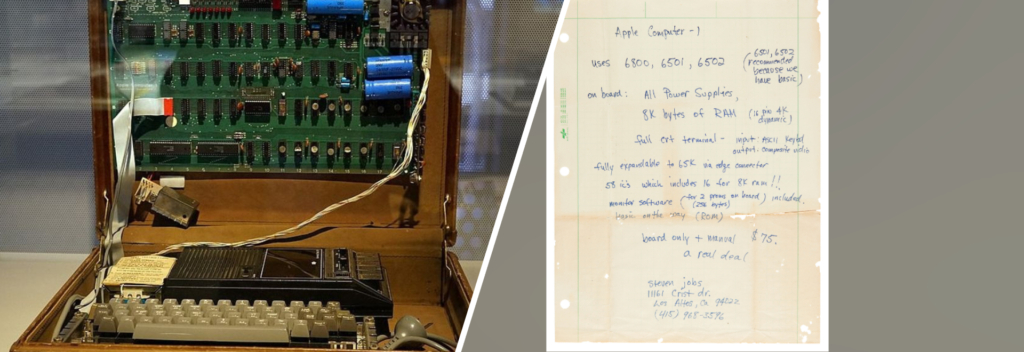 Apple Computer - 1
uses 6800, 6501, 6502 (6501, 6502
recommended
because we
have basic)
on board: All Power Supplies,
8K bytes of RAM (16 pin 4K
dynamic)
full crt terminal - input: ASCII Keybd
output: composite video
fully expandable to 65K via edge connector
58 ic's which includes 16 for 8K ram!!
monitor software (for 2 proms on board) included.
(256 bytes)
basic on the way (ROM)
board only + manual $75.
a real deal
steven jobs
11161 Crist dr.
Los Altos, Ca 94022
(415) 968-3596